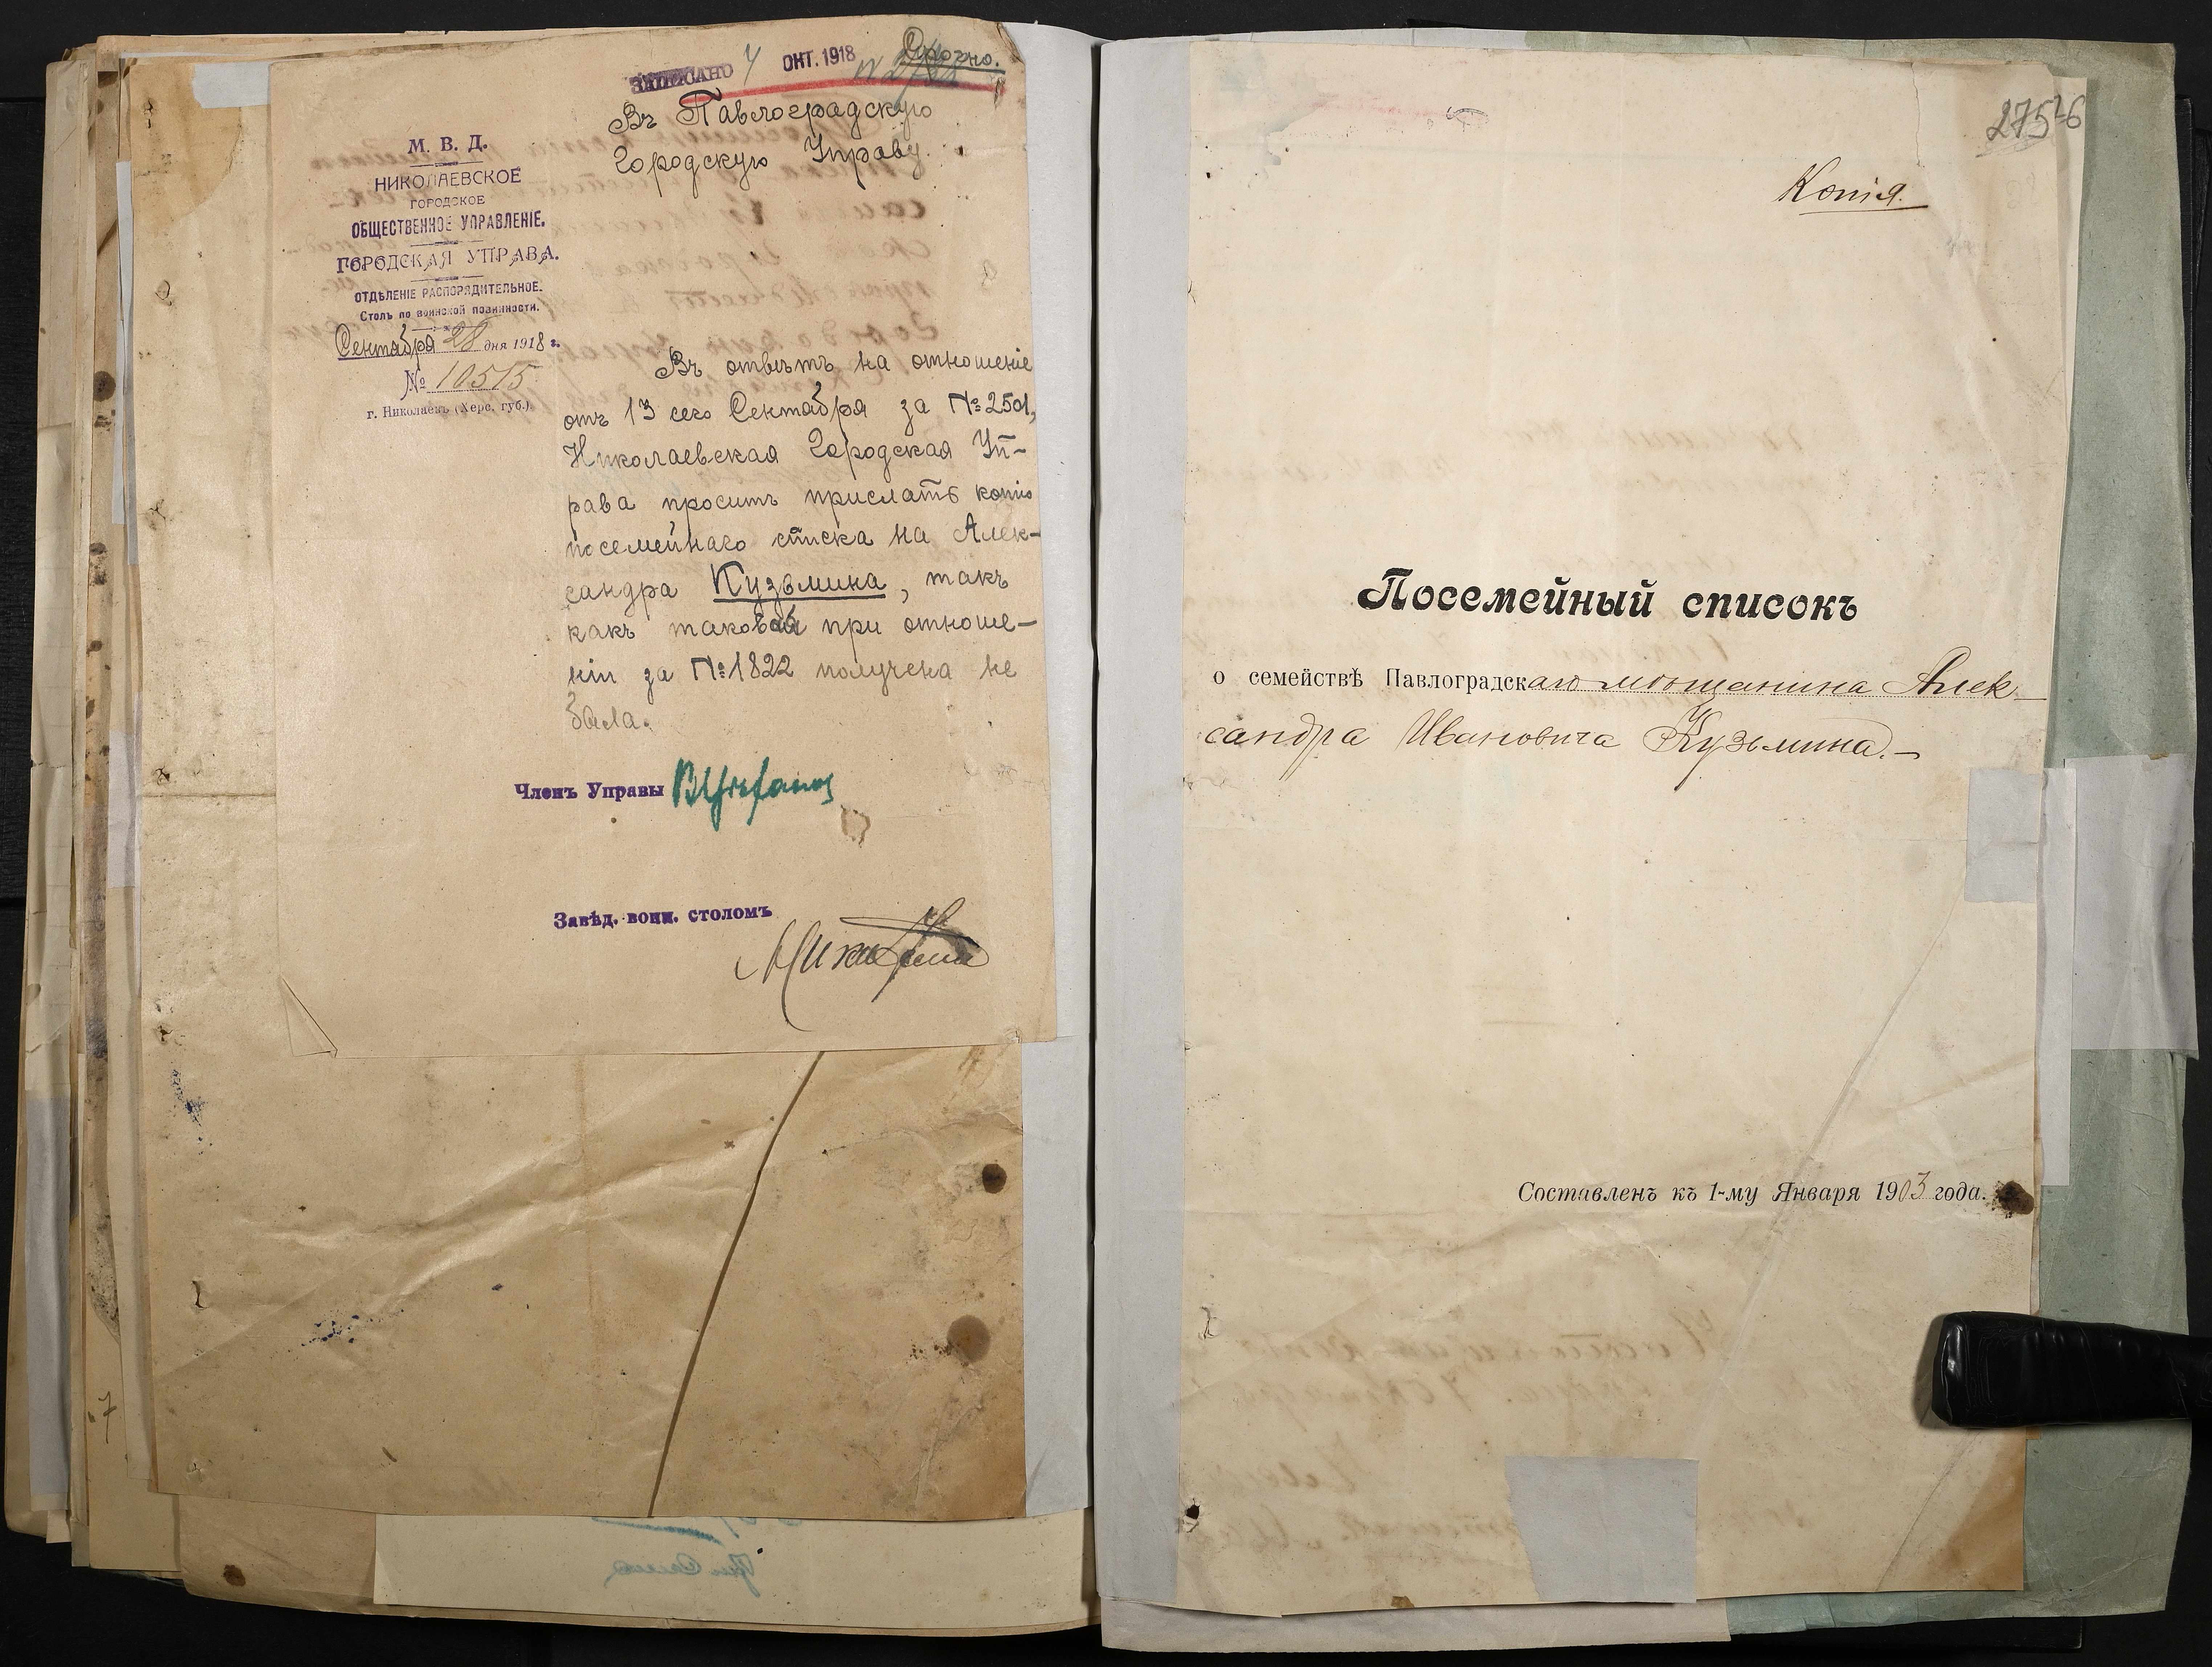 ЗАПИСАНО 4 ОКТ. 1918
Срочно.
М. В. Д.
НИКОЛАЕВСКОЕ
ГОРОДСКОЕ
ОБЩЕСТВЕННОЕ УПРАВЛЕНІЕ.
ГОРОДСКАЯ УПРАВА.
ОТДѢЛЕНІЕ РАСПОРЯДИТЕЛЬНОЕ.
Столъ по воинской повинности.
Сентября 28 дня 1918 г.
№ 10515
г. Николаевъ (Херс. губ.)
Въ Павлоградскую
Городскую Управу.
Въ отвѣтъ на отношеніе
отъ 13 сего Сентября за №2501,
Николаевская Городская Уп-
рава проситъ прислать копію
посемейнаго списка на Алек-
сандра Кузьмина, такъ
какъ таковая при отноше-
ніи за №1822 получена не
была.
Членъ Управы
Завѣд. воин. столомъ
275
26
Копія.
Посемейный списокъ
о семействѣ Павлоградскаго мѣщанина Алек-
сандра Ивановича Кузьмина.-
Составленъ къ 1-му Января 1903 года.